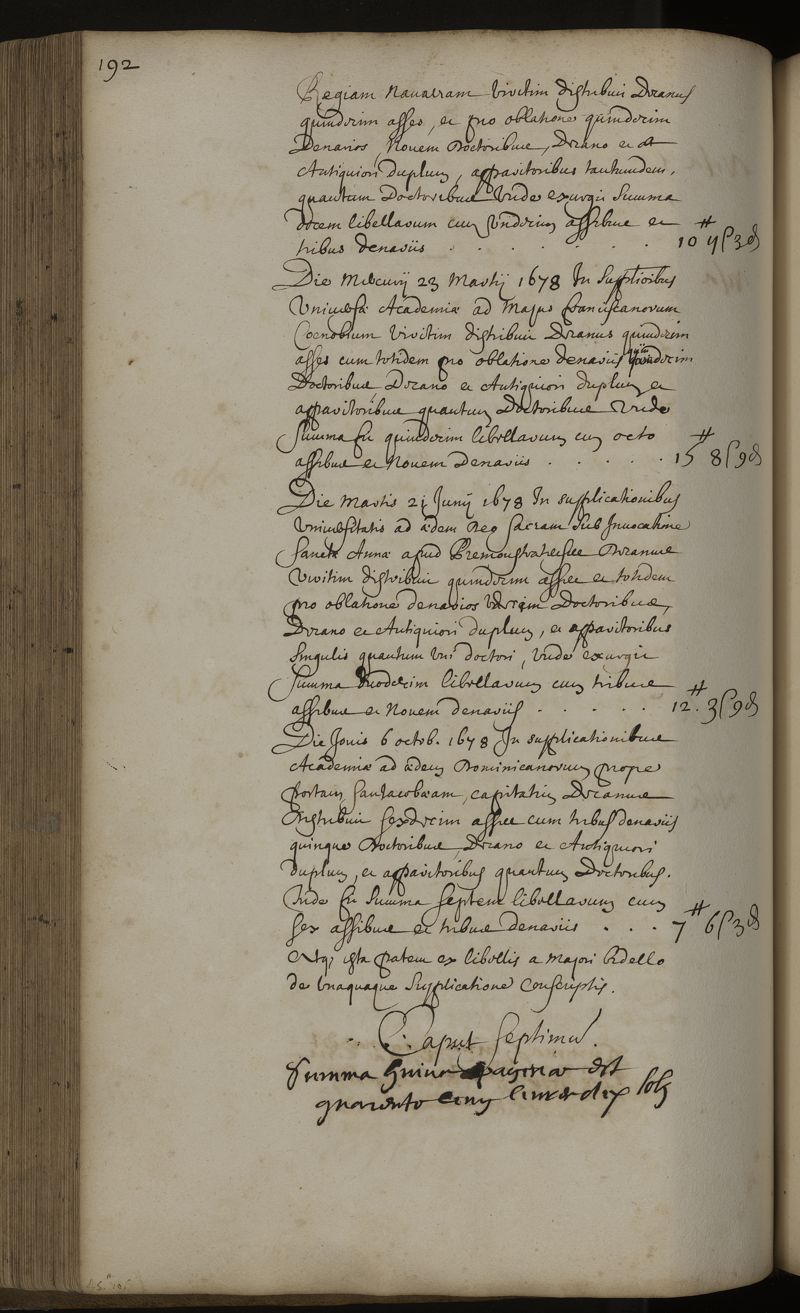 192
Regiam Navarram viritim distribuit Decanus
quindecim asses, et pro oblatione quindecim
Denarios, Novem Doctoribus, Decano et
Antiquiori duplum, apparitoribus tantumdem,
quantum Doctoribus Unde exurgit Summa
decem libellarum cum Undecim assibus et
tribus denariis . . . . . . . 10 # 11 s 3 d
Die Mercurij 23 Martij 1678 In Supplicõibus
Universæ Academiæ ad Majus franciscanorum
Coenobium Viritim distribuit Decanus quindecim
asses cum totidem pro oblatione denariis
Doctoribus, Decano et Antiquiori duplum et
apparitoribus quantum Doctoribus Unde
Summa fit quindecim libellarum cum octo
assibus et Novem Denariis . . . . . 15 # 8 s 9 d
Die Martis 21 Junij 1678 In supplicationibus
Universitatis ad ædem Deo Sacram Sub Invocatione
Sanctæ Annæ apud Premonstratenses Decanus
Viritim distribuit quindecim asses et totidem
pro oblatione denarios Doctoribus,
Decano et Antiquiori duplum, et apparitoribus
Singulis quantum Uni doctori, Unde exurgit
Summa duodecim libellarum cum tribus
assibus et Novem denariis . . . . . 12 # 3 s 9 d
Die Jovis 6 octob. 1678 In supplicationibus
Academiæ ad ædem Dominicanorum prope
portam Sanjacobæam, capitatim Decanus
Distribuit sexdecim asses cum tribus denariis
quinque Doctoribus, Decano et Antiquiori
duplum, et apparitoribus quantum Doctoribus.
Inde fit Summa septem libellarum cum
sex assibus et tribus denariis . . . 7 # 6 s 3 d
Atq; ista patent ex libellis a Majori Bidello
de Unaquaque Supplicatione Conscriptis.
Caput Septimum.
Summa hujus paginæ est
quarente cinq livres dix sols